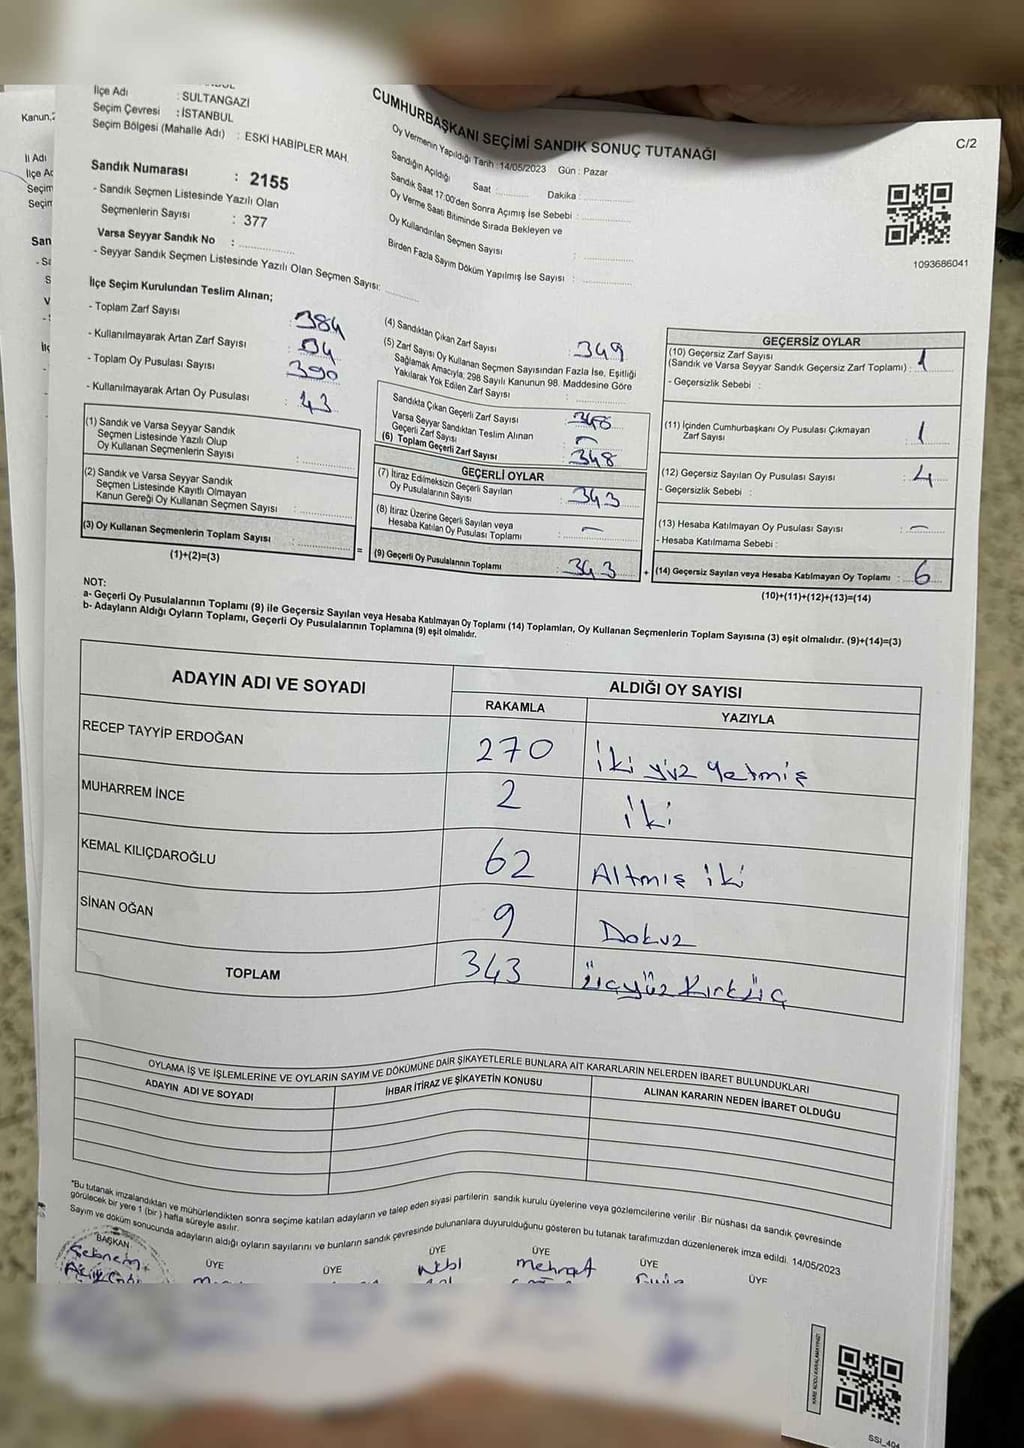 İlçe Adı : SULTANGAZİ
Seçim Çevresi : İSTANBUL
Seçim Bölgesi (Mahalle Adı) : ESKİ HABİPLER MAH.
Sandık Numarası : 2155
- Sandık Seçmen Listesinde Yazılı Olan
Seçmenlerin Sayısı : 377
Varsa Seyyar Sandık No :
- Seyyar Sandık Seçmen Listesinde Yazılı Olan Seçmen Sayısı:
CUMHURBAŞKANI SEÇİMİ SANDIK SONUÇ TUTANAĞI
C/2
Oy Vermenin Yapıldığı Tarih : 14/05/2023 Gün : Pazar
Sandığın Açıldığı Saat : Dakika :
Sandık Saat 17:00'den Sonra Açımış İse Sebebi :
Oy Verme Saati Bitiminde Sırada Bekleyen ve
Oy Kullandırılan Seçmen Sayısı :
Birden Fazla Sayım Döküm Yapılmış İse Sayısı :
1093686041
İlçe Seçim Kurulundan Teslim Alınan;
- Toplam Zarf Sayısı : 384
- Kullanılmayarak Artan Zarf Sayısı : 04
- Toplam Oy Pusulası Sayısı : 390
- Kullanılmayarak Artan Oy Pusulası : 43
(1) Sandık ve Varsa Seyyar Sandık
Seçmen Listesinde Yazılı Olup
Oy Kullanan Seçmenlerin Sayısı :
(2) Sandık ve Varsa Seyyar Sandık
Seçmen Listesinde Kayıtlı Olmayan
Kanun Gereği Oy Kullanan Seçmen Sayısı :
(3) Oy Kullanan Seçmenlerin Toplam Sayısı :
(1)+(2)=(3)
(4) Sandıktan Çıkan Zarf Sayısı : 349
(5) Zarf Sayısı Oy Kullanan Seçmen Sayısından Fazla İse, Eşitliği
Sağlamak Amacıyla; 298 Sayılı Kanunun 98. Maddesine Göre
Yakılarak Yok Edilen Zarf Sayısı :
Sandıkta Çıkan Geçerli Zarf Sayısı : 348
Varsa Seyyar Sandıktan Teslim Alınan
Geçerli Zarf Sayısı : -
(6) Toplam Geçerli Zarf Sayısı : 348
GEÇERLİ OYLAR
(7) İtiraz Edilmeksizin Geçerli Sayılan
Oy Pusulalarının Sayısı : 343
(8) İtiraz Üzerine Geçerli Sayılan veya
Hesaba Katılan Oy Pusulası Toplamı : -
(9) Geçerli Oy Pusulalarının Toplamı : 343
GEÇERSİZ OYLAR
(10) Geçersiz Zarf Sayısı
(Sandık ve Varsa Seyyar Sandık Geçersiz Zarf Toplamı) : 1
- Geçersizlik Sebebi :
(11) İçinden Cumhurbaşkanı Oy Pusulası Çıkmayan
Zarf Sayısı : 1
(12) Geçersiz Sayılan Oy Pusulası Sayısı : 4
- Geçersizlik Sebebi :
(13) Hesaba Katılmayan Oy Pusulası Sayısı : -
- Hesaba Katılmama Sebebi :
(14) Geçersiz Sayılan veya Hesaba Katılmayan Oy Toplamı : 6
(10)+(11)+(12)+(13)=(14)
NOT:
a- Geçerli Oy Pusulalarının Toplamı (9) ile Geçersiz Sayılan veya Hesaba Katılmayan Oy Toplamı (14) Toplamları, Oy Kullanan Seçmenlerin Toplam Sayısına (3) eşit olmalıdır. (9)+(14)=(3)
b- Adayların Aldığı Oyların Toplamı, Geçerli Oy Pusulalarının Toplamına (9) eşit olmalıdır.
ADAYIN ADI VE SOYADI
ALDIĞI OY SAYISI
RAKAMLA YAZIYLA
RECEP TAYYİP ERDOĞAN 270 İki yüz yetmiş
MUHARREM İNCE 2 İki
KEMAL KILIÇDAROĞLU 62 Altmış iki
SİNAN OĞAN 9 Dokuz
TOPLAM 343 Üçyüz Kırküç
OYLAMA İŞ VE İŞLEMLERİNE VE OYLARIN SAYIM VE DÖKÜMÜNE DAİR ŞİKAYETLERLE BUNLARA AİT KARARLARIN NELERDEN İBARET BULUNDUKLARI
ADAYIN ADI VE SOYADI İHBAR İTİRAZ VE ŞİKAYETİN KONUSU ALINAN KARARIN NEDEN İBARET OLDUĞU
*Bu tutanak imzalandıktan ve mühürlendikten sonra seçime katılan adayların ve talep eden siyasi partilerin sandık kurulu üyelerine veya gözlemcilerine verilir. Bir nüshası da sandık çevresinde
görülecek bir yere 1 (bir) hafta süreyle asılır.
Sayım ve döküm sonucunda adayların aldığı oyların sayılarını ve bunların sandık çevresinde bulunanlara duyurulduğunu gösteren bu tutanak tarafımızdan düzenlenerek imza edildi. 14/05/2023
BAŞKAN ÜYE ÜYE ÜYE ÜYE ÜYE ÜYE
Şebnem Mehmet
Kanun
İl Adı
İlçe
Seçim
Seçim
San